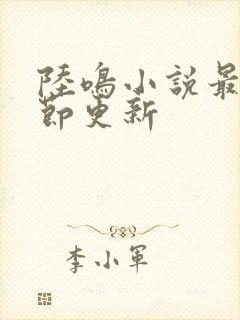 陸鳴小說最
節更新
李小軍